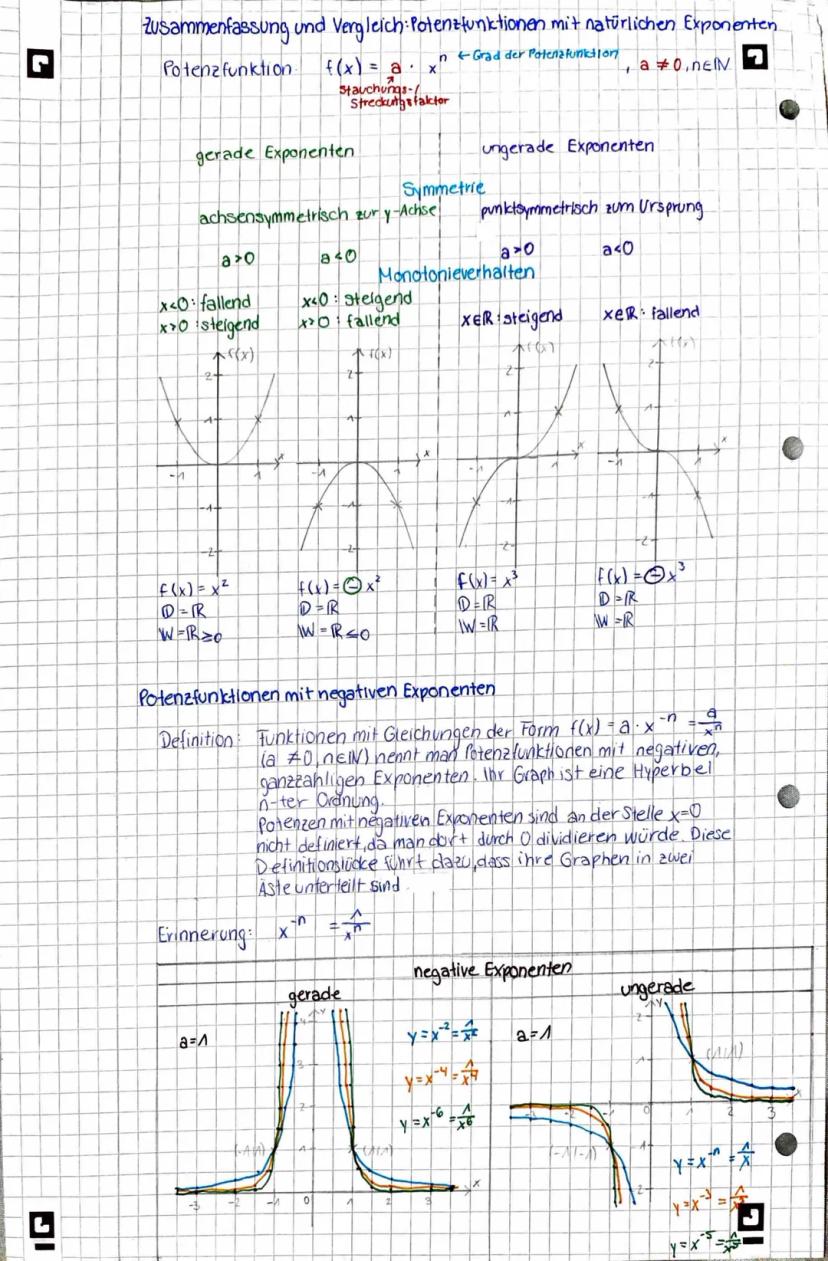 Zusammenfassung und Vergleich: Potenzfunktionen mit natürlichen Exponenten
Potenzfunktion: f(x) = a · xⁿ ← Grad der Potenzfunktion , a ≠ 0, n∈ℕ
Stauchungs-/
Streckungsfaktor
gerade Exponenten
ungerade Exponenten
Symmetrie
achsensymmetrisch zur y-Achse
punktsymmetrisch zum Ursprung
a>0 a<0 a>0 a<0
Monotonieverhalten
x<0: fallend
x>0: steigend
x<0: steigend
x>0: fallend
x∈ℝ: steigend
x∈ℝ: fallend
f(x) x 2 1 -1 1 -1 -2
f(x) x 2 1 -1 1 -1 -2
f(x) x 2 1 -1 1 -1 -2
f(x) x 2 1 -1 1 -1 -2
f(x) = x²
𝔻 = ℝ
𝕎 = ℝ≥0
f(x) = -x²
𝔻 = ℝ
𝕎 = ℝ≤0
f(x) = x³
𝔻 = ℝ
𝕎 = ℝ
f(x) = -x³
𝔻 = ℝ
𝕎 = ℝ
Potenzfunktionen mit negativen Exponenten
Definition: Funktionen mit Gleichungen der Form f(x) = a · x⁻ⁿ = a/xⁿ
(a ≠ 0, n∈ℕ) nennt man Potenzfunktionen mit negativen,
ganzzahligen Exponenten. Ihr Graph ist eine Hyperbel
n-ter Ordnung.
Potenzen mit negativen Exponenten sind an der Stelle x=0
nicht definiert, da man dort durch 0 dividieren würde. Diese
Definitionslücke führt dazu, dass ihre Graphen in zwei
Äste unterteilt sind.
Erinnerung: x⁻ⁿ = 1/xⁿ
negative Exponenten
gerade
ungerade
a=1
y = x⁻² = 1/x²
y = x⁻⁴ = 1/x⁴
y = x⁻⁶ = 1/x⁶
y 4 3 2 1
(-1|1) (1|1)
-3 -2 -1 0 1 2 3 x
a=1
y 2 1
(1|1)
-3 -2 0 1 2 3 x
(-1|-1) -1
-2
y = x⁻ⁿ = 1/x
y = x⁻³ = 1/x³
y = x⁻⁵ = 1/x⁵